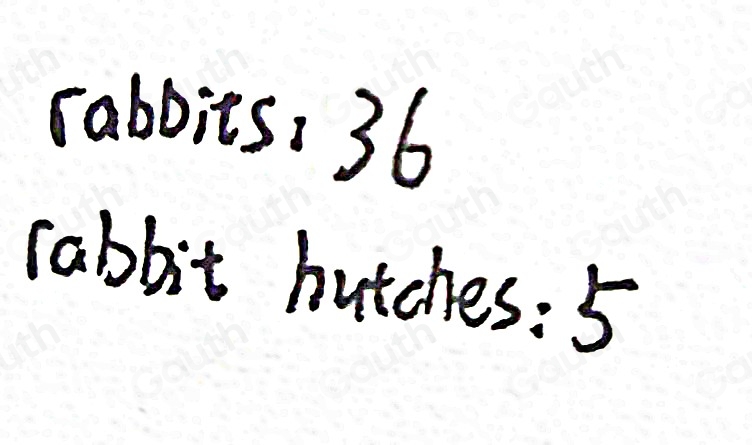 rabbits: 36
rabbit hutches: 5